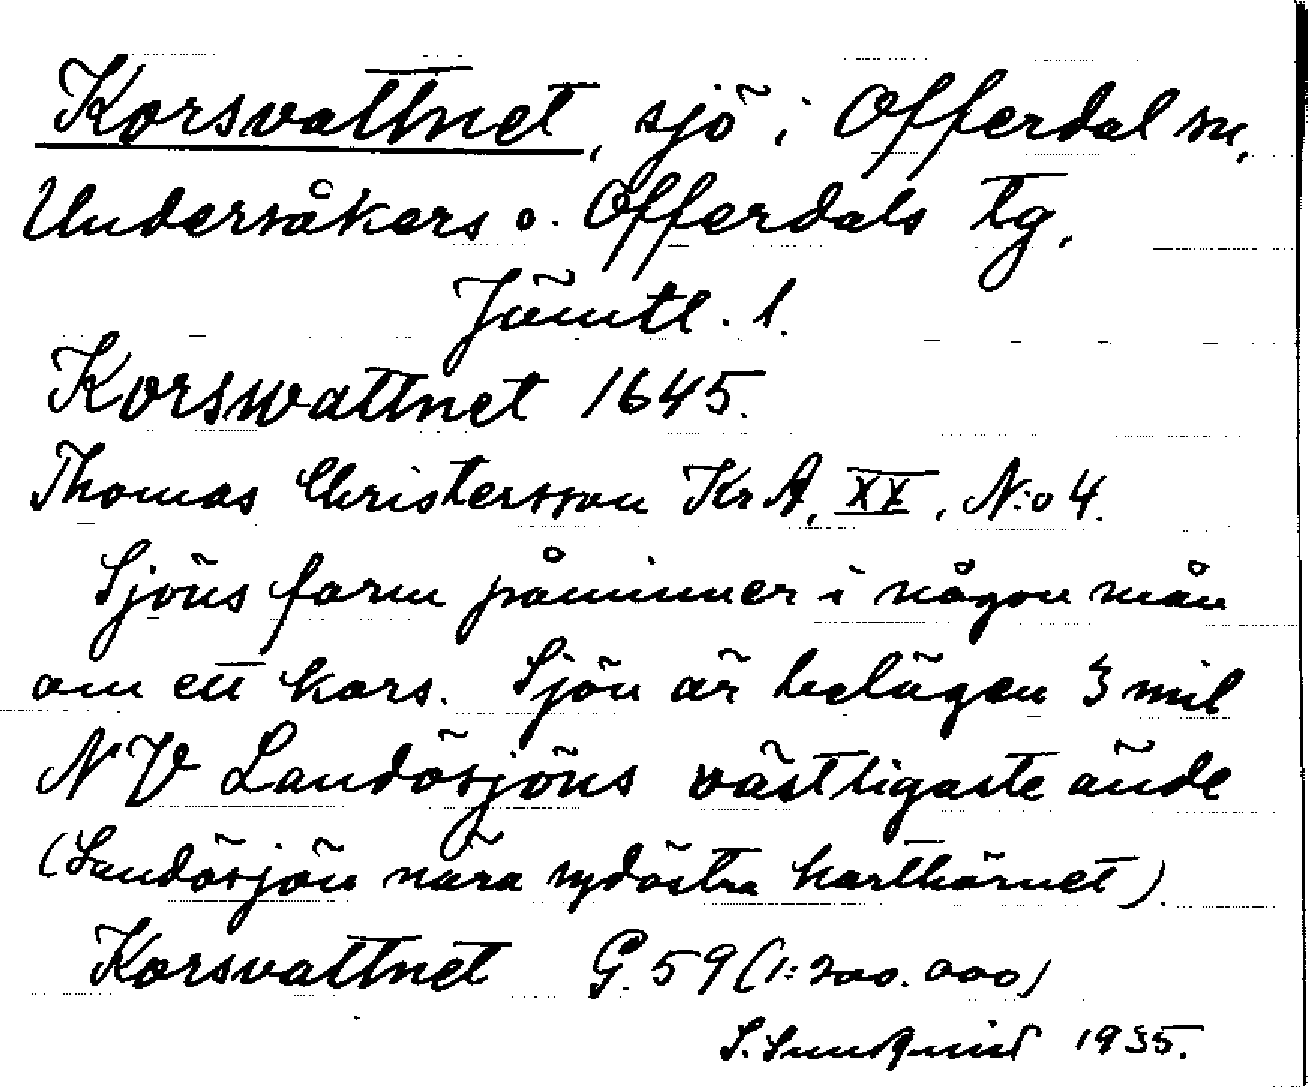 Korsvattnet, sjö i Offerdal sn,
Undersåkers o. Offerdals tg.
Jämtl. l.
Korswattnet 1645.
Thomas Christersson KrA, XX, N:o 4.
Sjöns form påminner i någon mån
om ett kors. Sjön är belägen 3 mil
NV Landösjöns västligaste ände
(Landösjön nära sydöstra karthörnet).
Korsvattnet G. 59 (1:200.000)
1935.